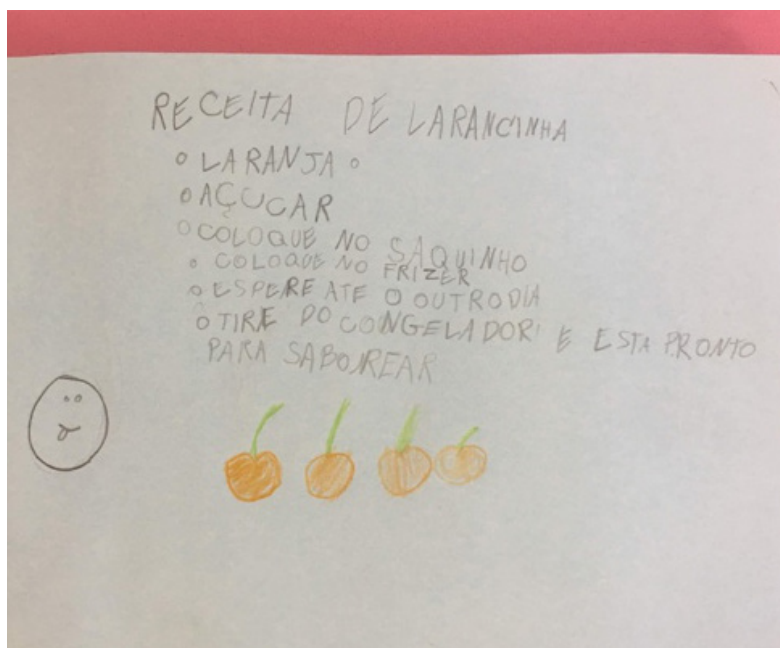 RECEITA DE LARANCINHA
o LARANJA o
o AÇUCAR
o COLOQUE NO SAQUINHO
o COLOQUE NO FRIZER
o ESPERE ATE O OUTRO DIA
o TIRE DO CONGELADOR E ESTA PRONTO
PARA SABOREAR